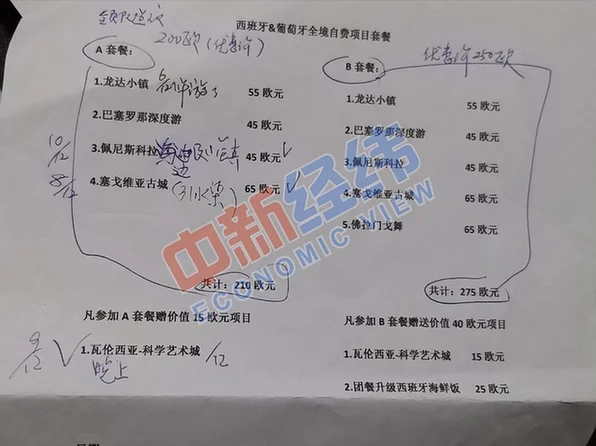 西班牙&葡萄牙全境自费项目套餐
200欧(优惠价)
A 套餐：
1.龙达小镇 55 欧元
2.巴塞罗那深度游 45 欧元
10/12
3.佩尼斯科拉 45 欧元 √
8/12
4.塞戈维亚古城 (引水渠) 65 欧元 √
共计：210 欧元
凡参加 A 套餐赠价值 15 欧元项目
9/12 √ 1.瓦伦西亚-科学艺术城 /12
晚上
优惠价250欧
B 套餐：
1.龙达小镇 55 欧元
2.巴塞罗那深度游 45 欧元
3.佩尼斯科拉 45 欧元
4.塞戈维亚古城 65 欧元
5.佛拉门戈舞 65 欧元
共计：275 欧元
凡参加 B 套餐赠送价值 40 欧元项目
1.瓦伦西亚-科学艺术城 15 欧元
2.团餐升级西班牙海鲜饭 25 欧元
中新经纬
ECONOMIC VIEW